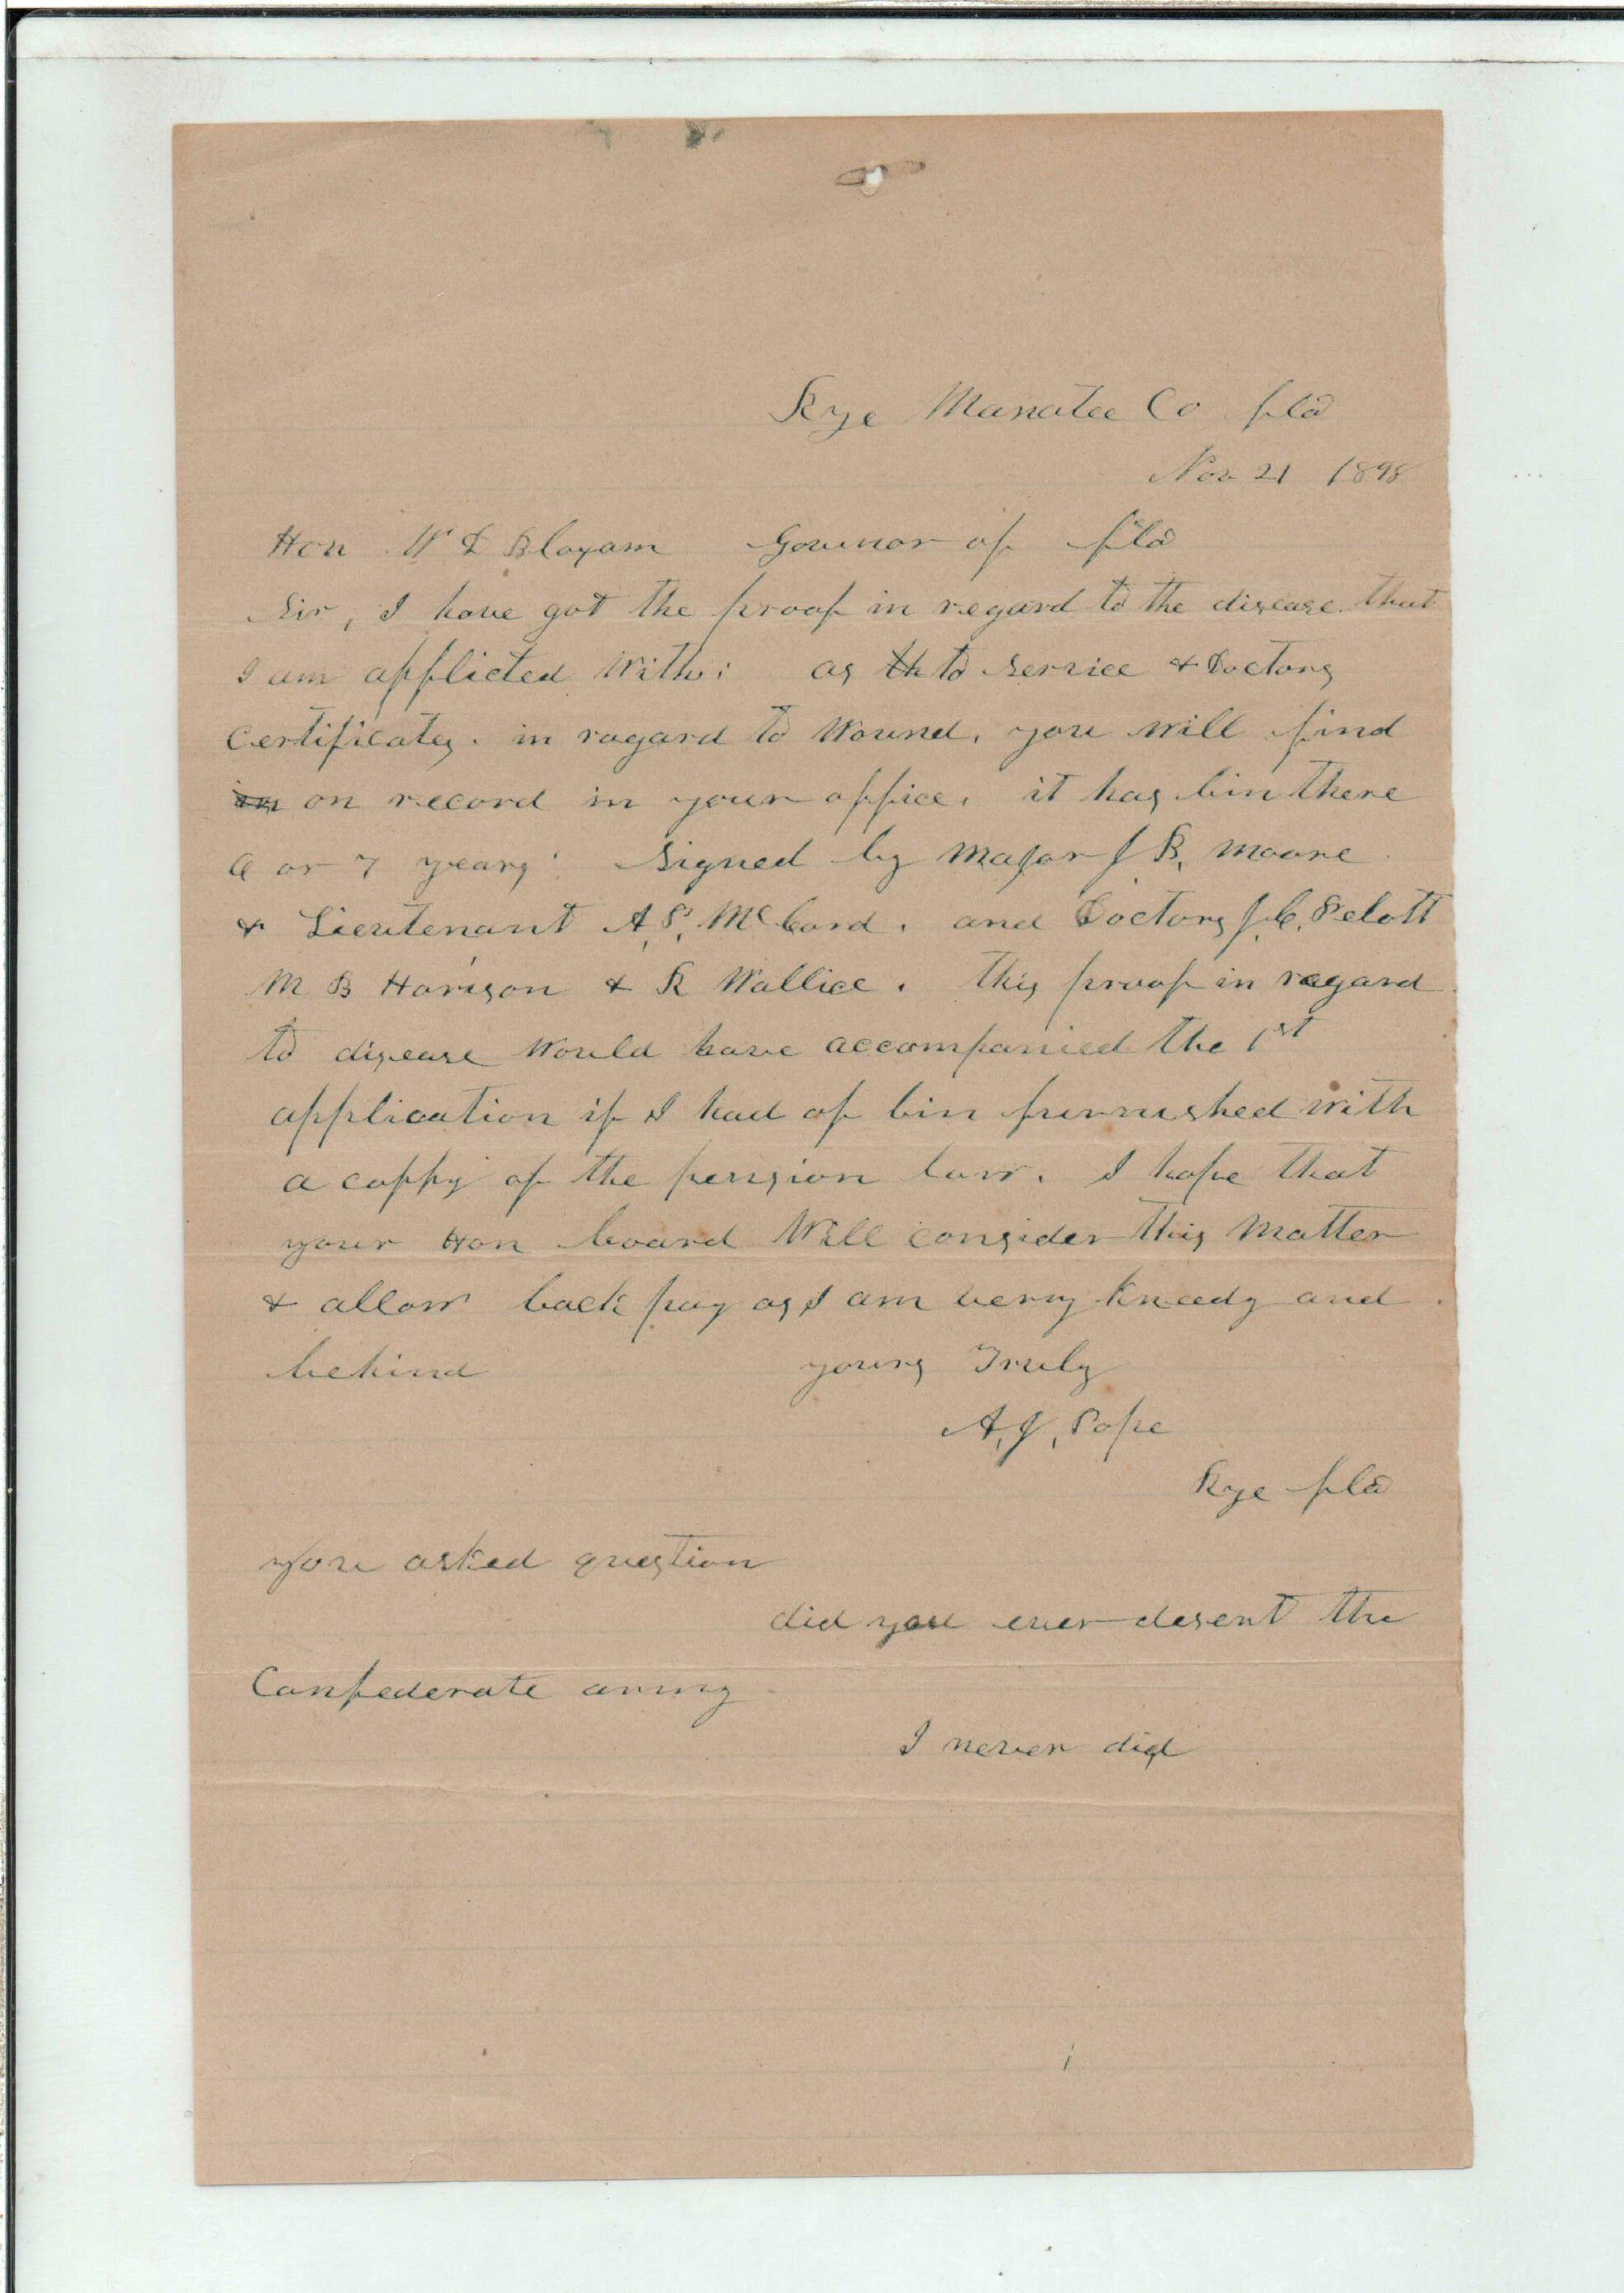 Rye Manatee Co fla
Nov 21 1898
Hon W D Bloxam Govunor of fla
Sir, I have got the proof in regard to the disease that
I am afflicted with: as th to service & Doctors
certificates. in ragard to Wound, you will find
on record in your office, it has bin there
6 or 7 years: Signed by Major J B, Moore
& Lieutenant A, P, McCord. and Doctors J, C, Pelott
M B Harison & R Wallice. this proof in ragard
to disease Would have accompanied the 1st
application if I had of bin furnushed with
a coppy of the pension law. I hope that
your Hon board Will consider this Matter
& allow back pay as I am very kneedy and
behind yours Truly
A, J, Pope
Rye fla
you asked question
did you ever desert the
Confederate army
I never did